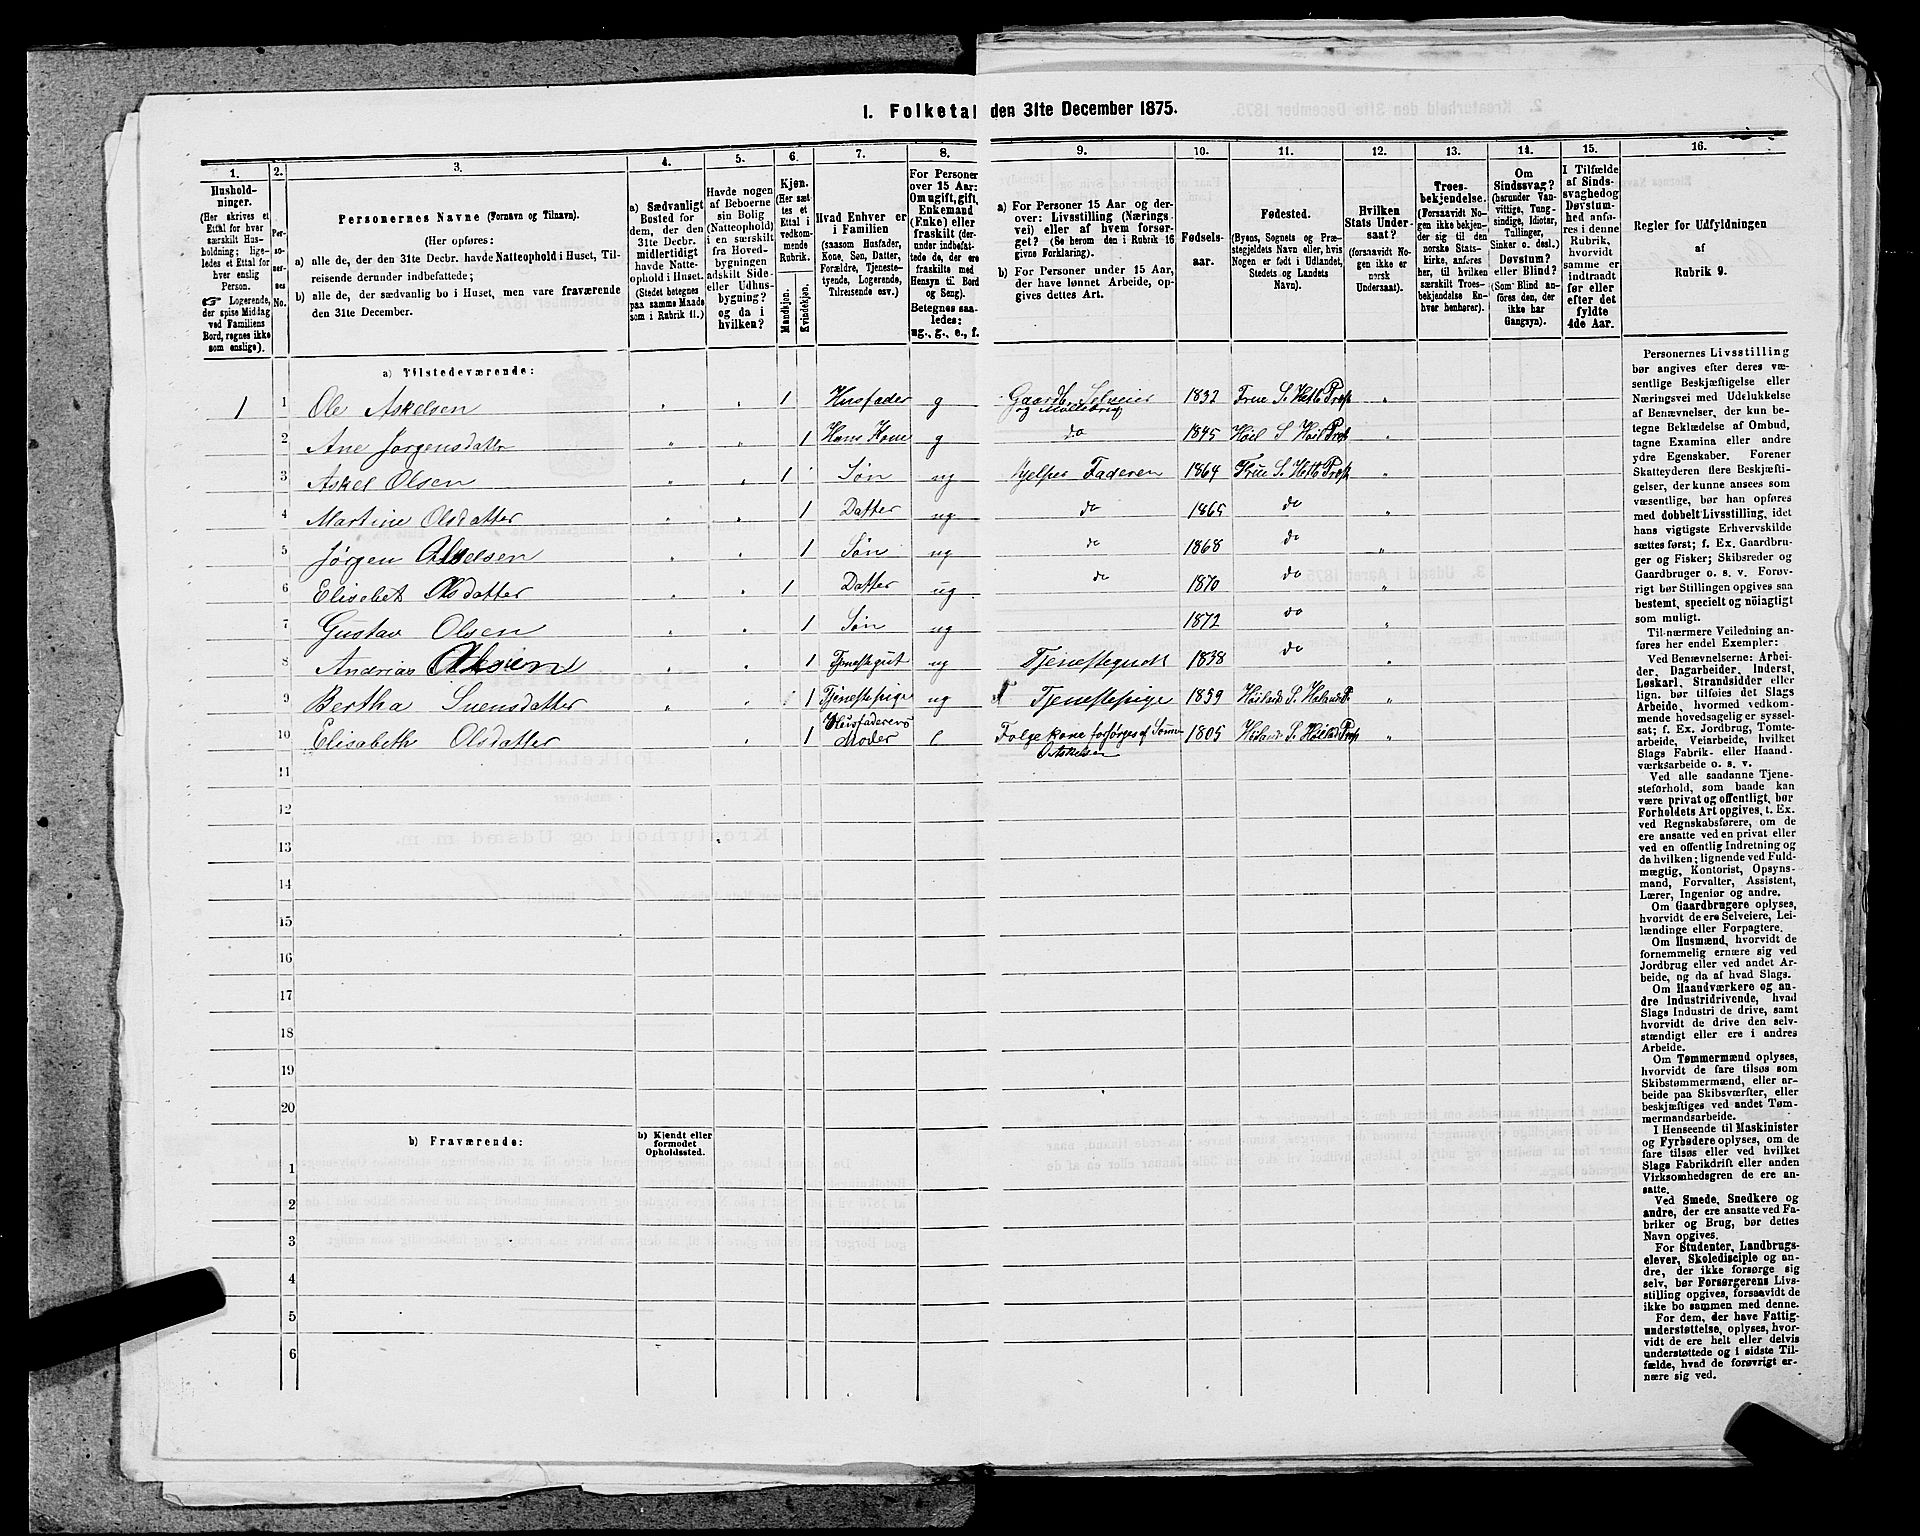 1. Folketal den 31te December 1875.
1.
Hushold-
ninger.
(Her skrives et
Ettal for hver
særskilt Hus-
holdning; lige-
ledes et Ettal for
hver enslig
Person.
Logerende,
der spise Middag
ved Familiens
Bord, regnes ikke
som enslige).
2.
Per-
so-
ner-
nes
No.
3.
Personernes Navne (Fornavn og Tilnavn).
(Her opføres:
a) alle de, der den 31te Decbr. havde Natteophold i Huset, Til-
reisende derunder indbefattede;
b) alle de, der sædvanlig bo i Huset, men vare fraværende
den 31te December.
4.
a) Sædvanligt
Bosted for
dem, der den
31te Decbr.
midlertidigt
havde Natte-
ophold i Huset.
(Stedet betegnes
paa samme Maade
som i Rubrik 11.)
5.
Havde nogen
af Beboerne
sin Bolig
(Natteophold)
i en særskilt
fra Hoved-
bygningen
adskilt Side-
eller Udhus-
bygning?
og da i
hvilken?
6.
Kjøn.
(Her sæt-
tes et
Ettal i
vedkom-
mende
Rubrik.
Mandkjøn.
Kvindekjøn.
7.
Hvad Enhver er
i Familien
(saasom Husfader,
Kone, Søn, Datter,
Forældre, Tjeneste-
tyende, Logerende,
Tilreisende osv.)
8.
For Personer
over 15 Aar:
Om ugift, gift,
Enkemand
(Enke) eller
fraskilt (der-
under indbefat-
tede de, der ere
fraskilte med
Hensyn til Bord
og Seng).
Betegnes saa-
ledes:
ug., g., e., f.
9.
a) For Personer 15 Aar og der-
over: Livsstilling (Nærings-
vei) eller af hvem forsør-
get? (Se herom den i Rubrik 16
givne Forklaring).
b) For Personer under 15 Aar,
der have lønnet Arbeide, op-
gives dettes Art.
10.
Fødsels-
aar.
11.
Fødested.
(Byens, Sognets og Præ-
stegjeldets Navn eller, hvis
Nogen er født i Udlandet,
Stedets og Landets
Navn).
12.
Hvilken
Stats Under-
saat?
(forsaavidt No-
gen ikke er
norsk
Undersaat).
13.
Troes-
bekjendelse.
(Forsaavidt No-
gen ikke bekjen-
der sig til den
norske Stats-
kirke, anføres
her, til hvilken
særskilt Troes-
bekjendelse En-
hver henhører).
14.
Om
Sindssvag?
(herunder Van-
vittige, Tung-
sindige, Idioter,
Tullinger,
Sinker o. desl.)
Døvstum?
eller Blind?
(Som Blind an-
føres den, der
ikke har
Gangsyn).
15.
I Tilfælde
af Sinds-
svaghed og
Døvstum-
hed anfø-
res i denne
Rubrik,
hvorvidt
samme er
indtraadt
før eller
efter det
fyldte
4de Aar.
16.
Regler for Udfyldningen
af
Rubrik 9.
a) Tilstedeværende:
1 1 Ole Askelsen 1 Husfader g Gaardb. Selveier og Møllebrug 1832 Frue S. Hetl. Præs
2 Ane Jørgensdatter 1 Hans Kone g do 1845 Høil S Høil Præs
3 Askel Olsen 1 Søn ug Hjelper Faderen 1864 Frue S. Hetl. Præs
4 Martine Olsdatter 1 Datter ug do 1865 do
5 Jørgen Olsen 1 Søn ug do 1868 do
6 Elisebet Olsdatter 1 Datter ug do 1870 do
7 Gustav Olsen 1 Søn ug 1872 do
8 Andrias Olsen 1 Tjenestegut ug Tjenestegudt 1838 do
9 Bertha Svensdatter 1 Tjenestepige ug Tjenestepige 1859 Høiland S. Høiland P.
10 Elisabeth Olsdatter 1 Husfaderens Moder e Folgekone forsørges af Sønnen O Askelsen 1805 Høiland S. Høiland Præs
11
12
13
14
15
16
17
18
19
20
b) Fraværende:
b) Kjendt eller
formodet
Opholdssted.
1
2
3
4
5
6
Personernes Livsstilling
bør angives efter deres væ-
sentlige Beskjæftigelse eller
Næringsvei med Udelukkelse
af Benævnelser, der kun be-
tegne Beklædelse af Ombud,
tagne Examina eller andre
ydre Egenskaber. Forener
Skatteyderen flere Beskjæfti-
gelser, der kunne ansees som
væsentlige, bør han opføres
med dobbelt Livsstilling, idet
hans vigtigste Erhvervskilde
sættes først; f. Ex. Gaardbru-
ger og Fisker; Skibsreder og
Gaardbruger o. s. v. Forøv-
rigt bør Stillingen opgives saa
bestemt, specielt og nöiagtigt
som muligt.
Til nærmere Veiledning an-
føres her endel Exempler:
Ved Benævnelserne: Arbei-
der, Dagarbeider, Inderst,
Løskarl, Strandsidder eller
lign. bør tilføies det Slags
Arbeide, hvormed vedkom-
mende hovedsagelig er syssel-
sat; f. Ex. Jordbrug, Tomte-
arbeide, Veiarbeide, hvilket
Slags Fabrik- eller Haand-
værksarbeide o. s. v.
Ved alle saadanne Tjene-
steforhold, som baade kan
være privat og offentligt, bør
Forholdets Art opgives, t. Ex.
ved Regnskabsførere, om de
ere ansatte ved en privat eller
ved en offentlig Indretning og
da hvilken; lignende ved Fuld-
mægtig, Kontorist, Opsyns-
mand, Forvalter, Assistent,
Lærer, Ingeniør og andre.
Om Gaardbrugere oplyses,
hvorvidt de ere Selveiere, Lei-
lændinge eller Forpagtere.
Om Husmænd, hvorvidt de
fornemmelig ernære sig ved
Jordbrug eller ved andet Ar-
beide, og da af hvad Slags.
Om Haandværkere og an-
dre Industridrivende, hvad
Slags Industri de drive, samt
hvorvidt de drive den selv-
stændigt eller ere i andres
Arbeide.
Om Tømmermænd oplyses,
hvorvidt de fare tilsøs som
Skibstømmermænd, eller ar-
beide paa Skibsværfter, eller
beskjæftiges ved andet Tøm-
mermandsarbeide.
I Henseende til Maskinister
og Fyrbødere oplyses, om de
fare tilsøs eller ved hvilket
Slags Fabrikdrift eller anden
Virksomhedsgren de ere an-
satte.
Ved Smede, Snedkere og
andre, der ere ansatte ved Fa-
briker og Brug, bør dettes
Navn opgives.
For Studenter, Landbrugs-
elever, Skoledisciple og an-
dre, der ikke forsørge sig
selv, bør Forsørgerens Livs-
stilling opgives, forsaavidt de
ikke bo sammen med denne.
For dem, der have Fattig-
understøttelse, oplyses, hvor-
vidt de ere helt eller delvis
understøttede og i sidste Til-
fælde, hvad de forøvrigt er-
nære sig ved.